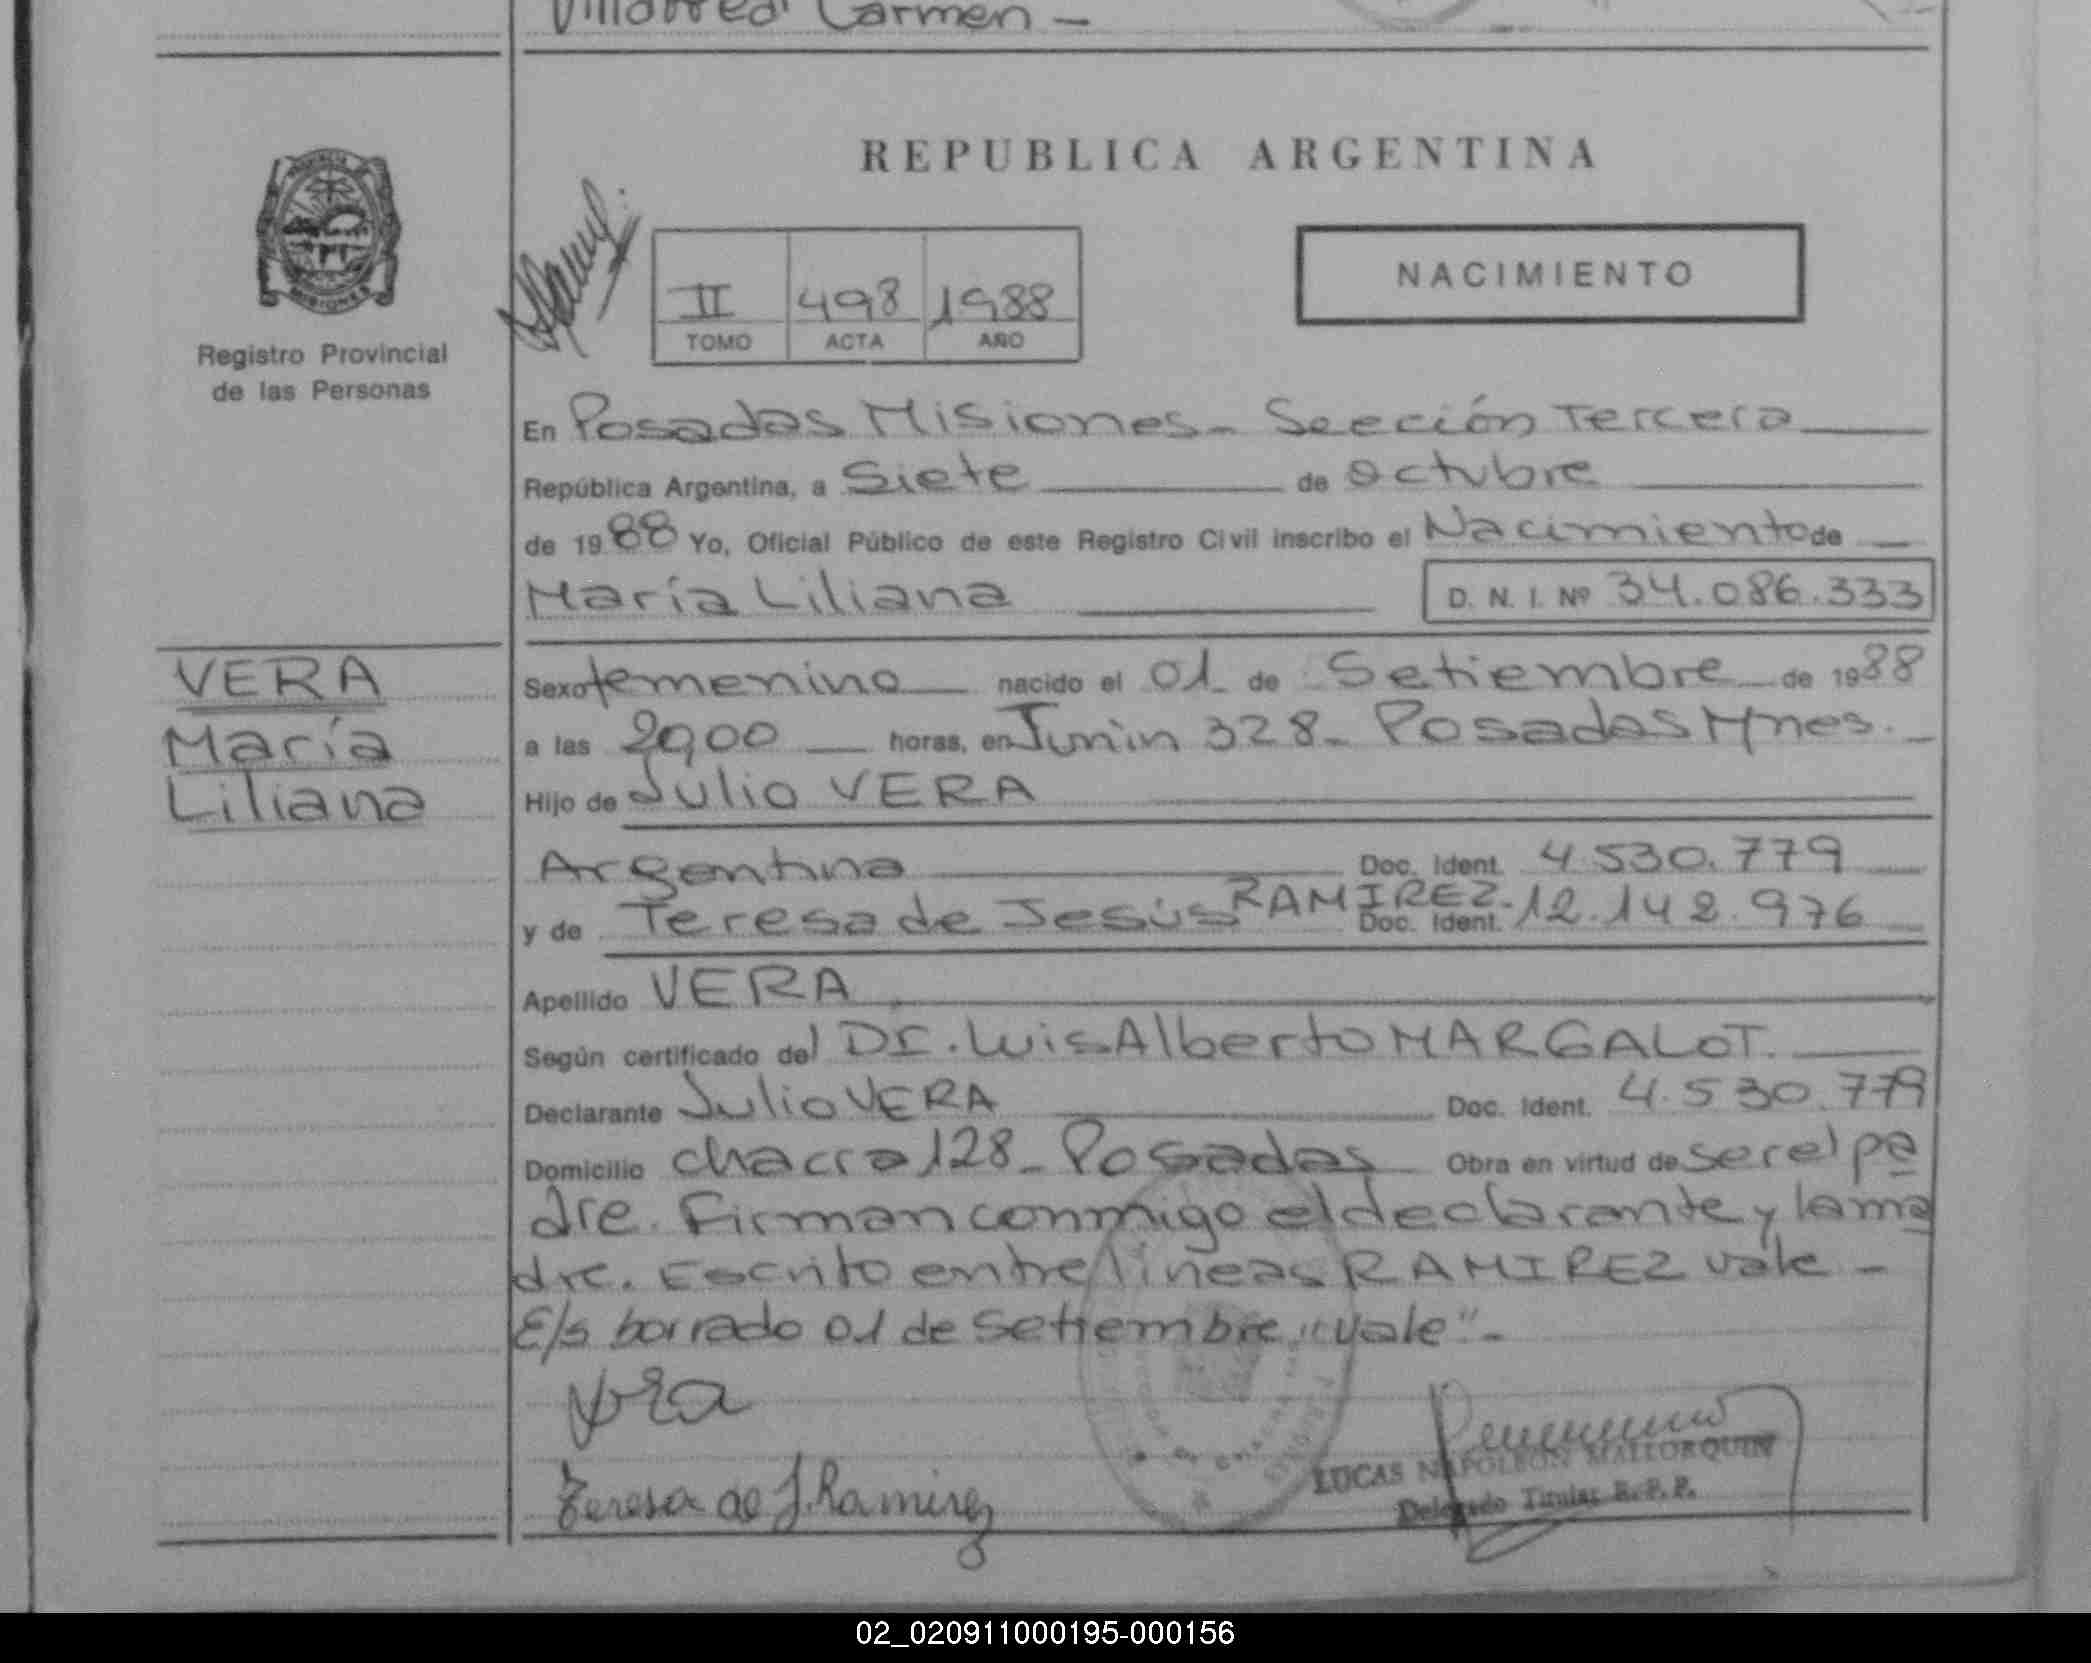 Villarreal Carmen -
PROVINCIA
MISIONES
Registro Provincial
de las Personas
REPUBLICA ARGENTINA
II 498 1988
TOMO ACTA AÑO
NACIMIENTO
En Posadas Misiones - Sección Tercera
República Argentina, a Siete de Octubre
de 1988 Yo, Oficial Público de este Registro Civil inscribo el Nacimiento de
María Liliana D. N. I. Nº 34.086.333
VERA
María
Liliana
Sexo femenino nacido el 01 de Setiembre de 1988
a las horas, en Junin 328 - Posadas Mnes. -
Hijo de Julio VERA
Argentina Doc. Ident. 4.530.779
y de Teresa de Jesús RAMIREZ. Doc. Ident. 12.142.976
Apellido VERA
Según certificado del Dr. Luis Alberto MARGALOT.
Declarante Julio VERA Doc. Ident. 4.530.779
Domicilio chacra 128 - Posadas Obra en virtud de ser el pa
dre. Firman conmigo el declarante y la ma
dre. Escrito entre lineas RAMIREZ vale -
E/s borrado 01 de Setiembre "vale" -
Vera
Teresa de J. Ramirez
LUCAS NAPOLEON MALLORQUIN
Delegado Titular R.P.P.
02_020911000195-000156